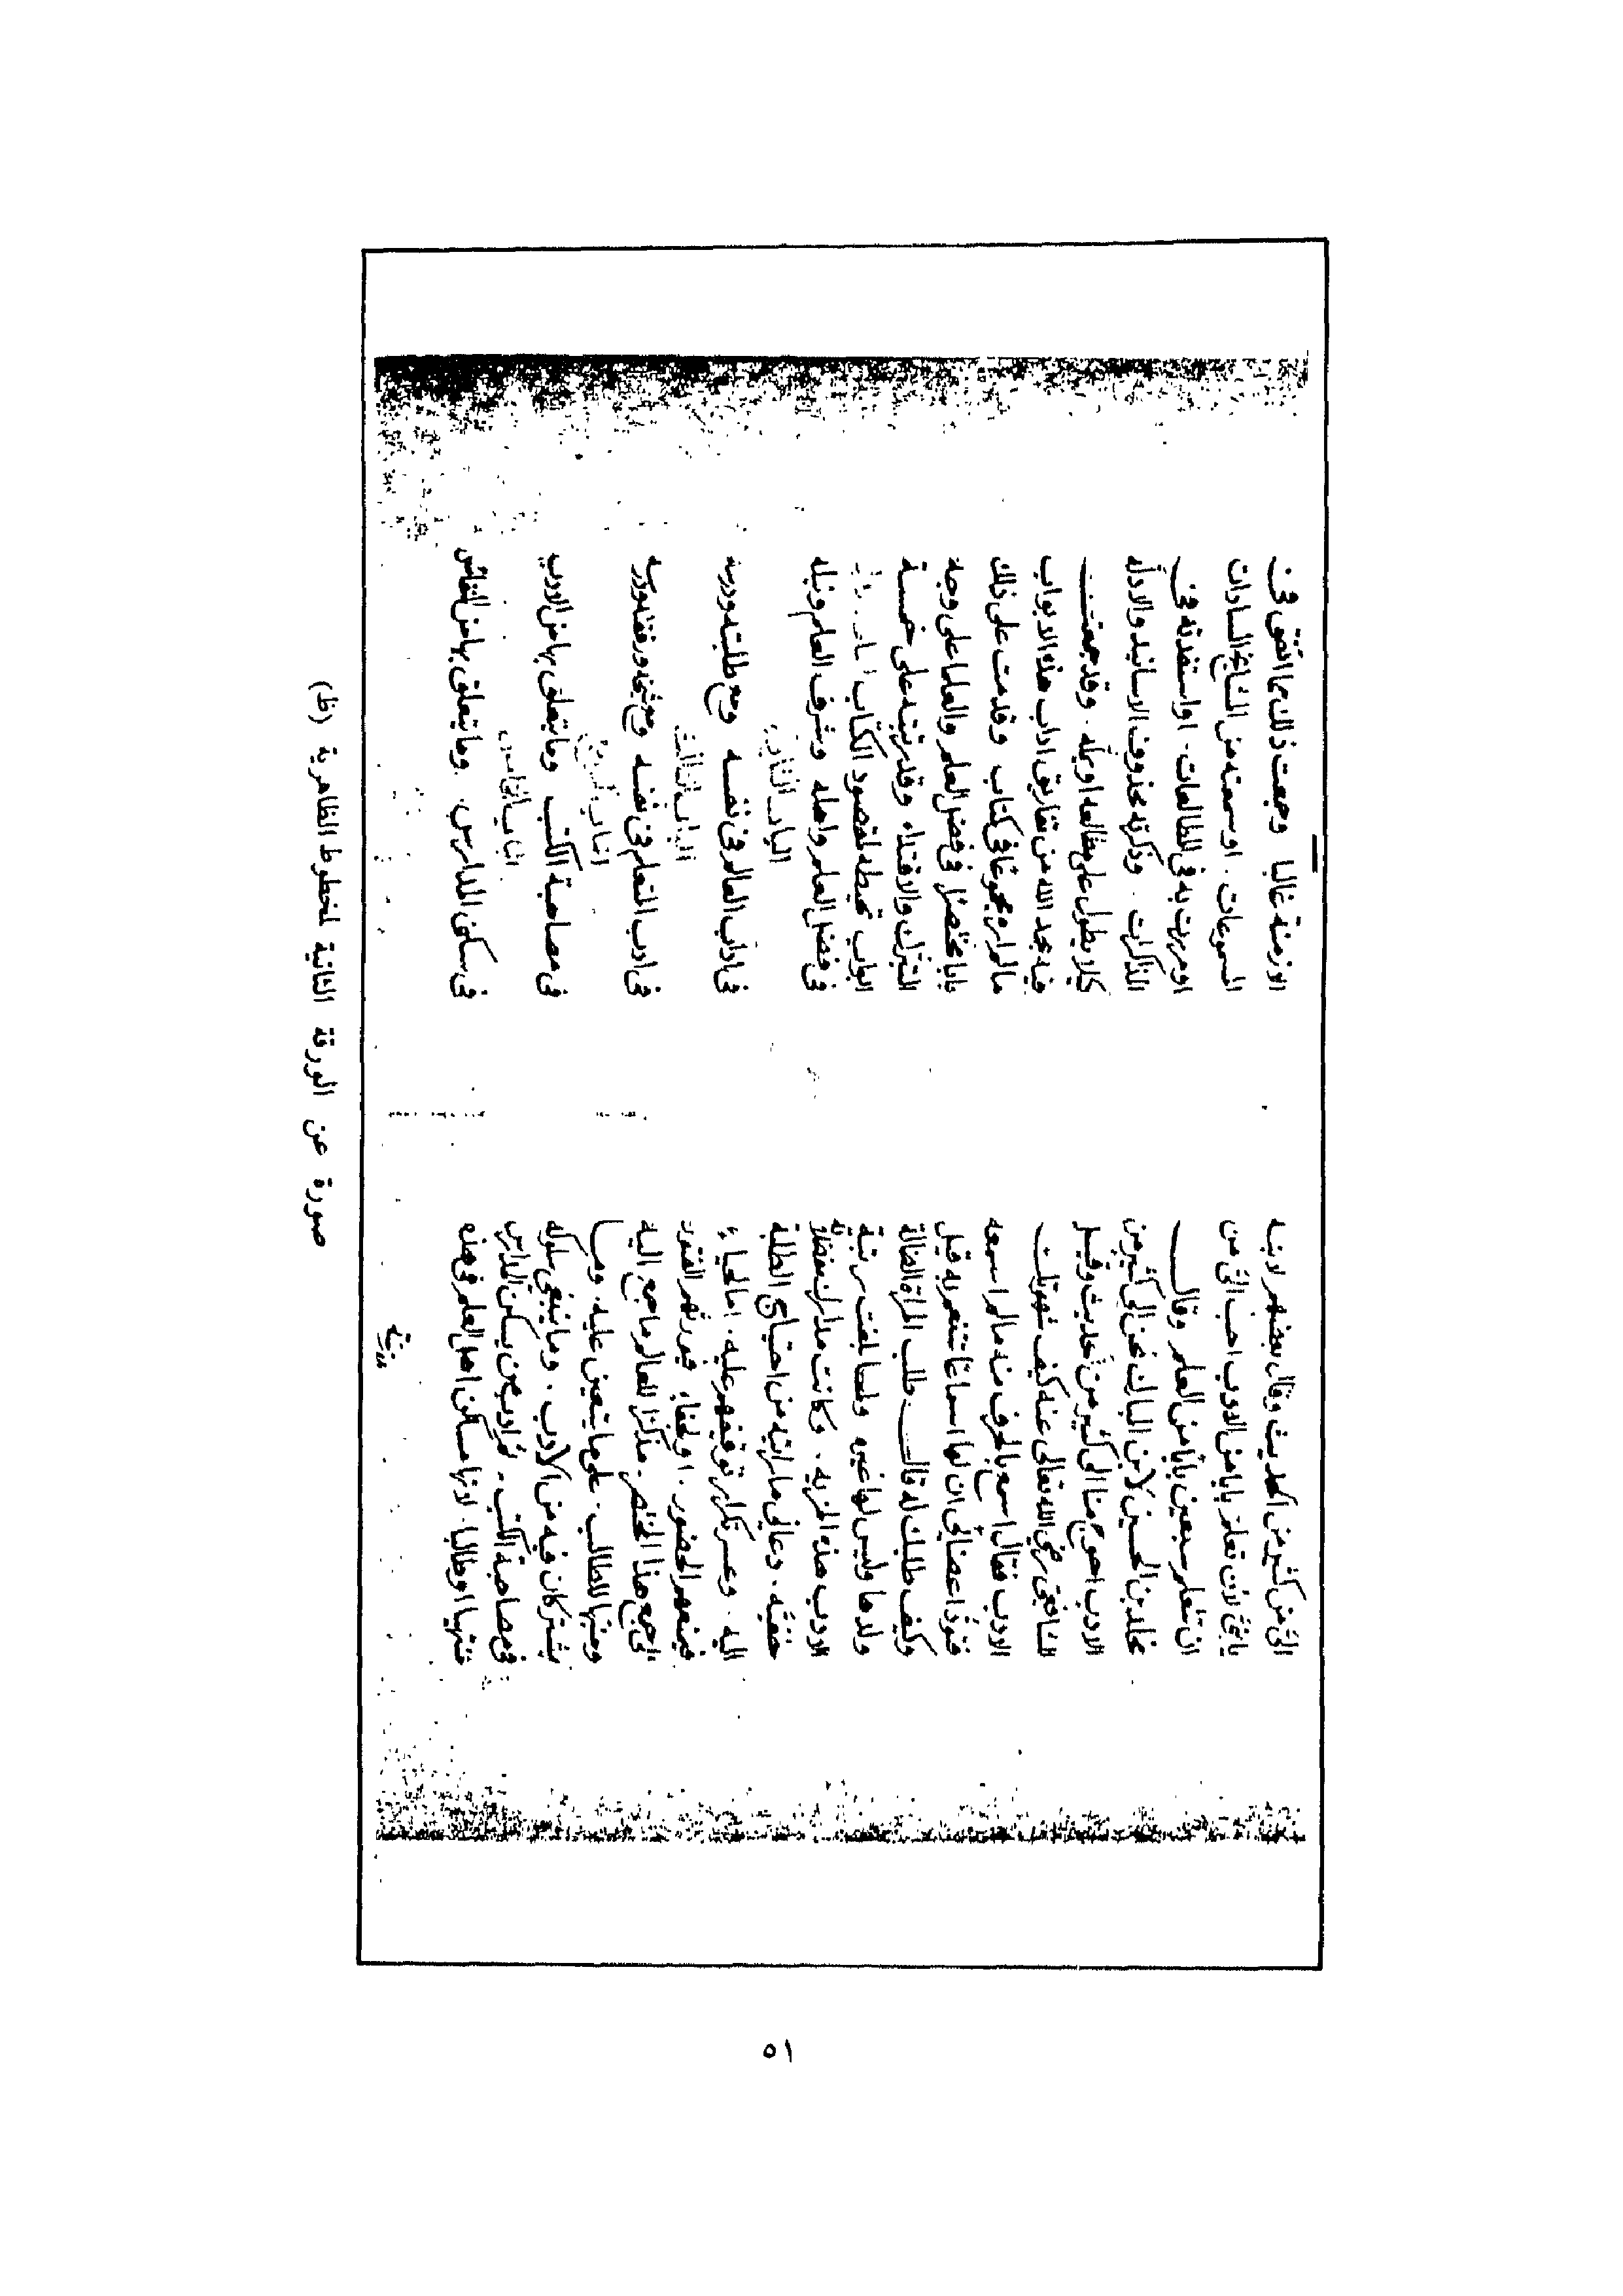 الىَّ من كثير من الحديث وقال بعضهم لابنه
يا بنىَّ لأن تعلم بابا من الادب احب الىَّ من
ان تتعلم سبعين بابًا من العلم وقال
مخلد بن الحسين لابن المبارك نحن الى كثير من
الادب احوج منا الى كثير من الحديث وقيل
للشافعى رضى الله تعالى عنه كيف شهوتك
للادب فقال اسمع بالحرف منه مما لم اسمعه
فتودُّ اعضائى ان لها اسماعًا تتنعم به قيل
وكيف طلبك له قال طلب المرأة المضلة
ولدها وليس لها غيره ولما بلغت رتبة
الادب هذه المزية . وكانت مدارك مفضلاته
خفيّه . دعانى ما رايته من احتياج الطلبة
اليه . وعسر تكرار توقيفهم عليه . اما لحياءٍ
فيمنعهم الحضور . او لجفاءٍ فيورثهم النفور
الى جمع هذا المختصر . مذكرًا للعالم ما جمع اليه
ومنبّها للطالب . على ما يتعين عليه . وما
يشتركان فيه من الادب . وما ينبغى سلوكه
فى مصاحبة الكتب . ثم ادب من يسكن المدارس
منتهيا او طالبا . لانها مساكن اهل العلم فى هذه
الازمنة غالبا وجمعت ذلك مما اتفق فى
المسموعات . او سمعته من المشايخ السادات
او مررت به فى المطالعات . او استفدته فى
المذاكرات . وذكرته محذوف الاسانيد والادلّه
كيلا يطول على مطالعه او يملّه . وقد جمعت
فيه بحمد الله من تفاريق اداب هذه الابواب
ما لم اره مجموعًا فى كتاب وقدمت على ذلك
بابا مختصرًا فى فضل العلم والعلما على وجه
التبرّك والاقتداء وقد رتبته على خمسة
ابواب تحيط بمقصود الكتاب
فى فضل العلم واهله وشرف العالم ونبله
الباب الثانى
فى اداب العالم فى نفسه ومع طلبته ودرسه
الباب الثالث
فى ادب المتعلم فى نفسه ومع شيخه ورفقته ودرسه
الباب الرابع
فى مصاحبة الكتب وما يتعلق بها من الادب
الباب الخامس
فى سكنى المدارس . وما يتعلق بها من النفائس
صورة عن الورقة الثانية لمخطوط الظاهرية (ظ)
٥١